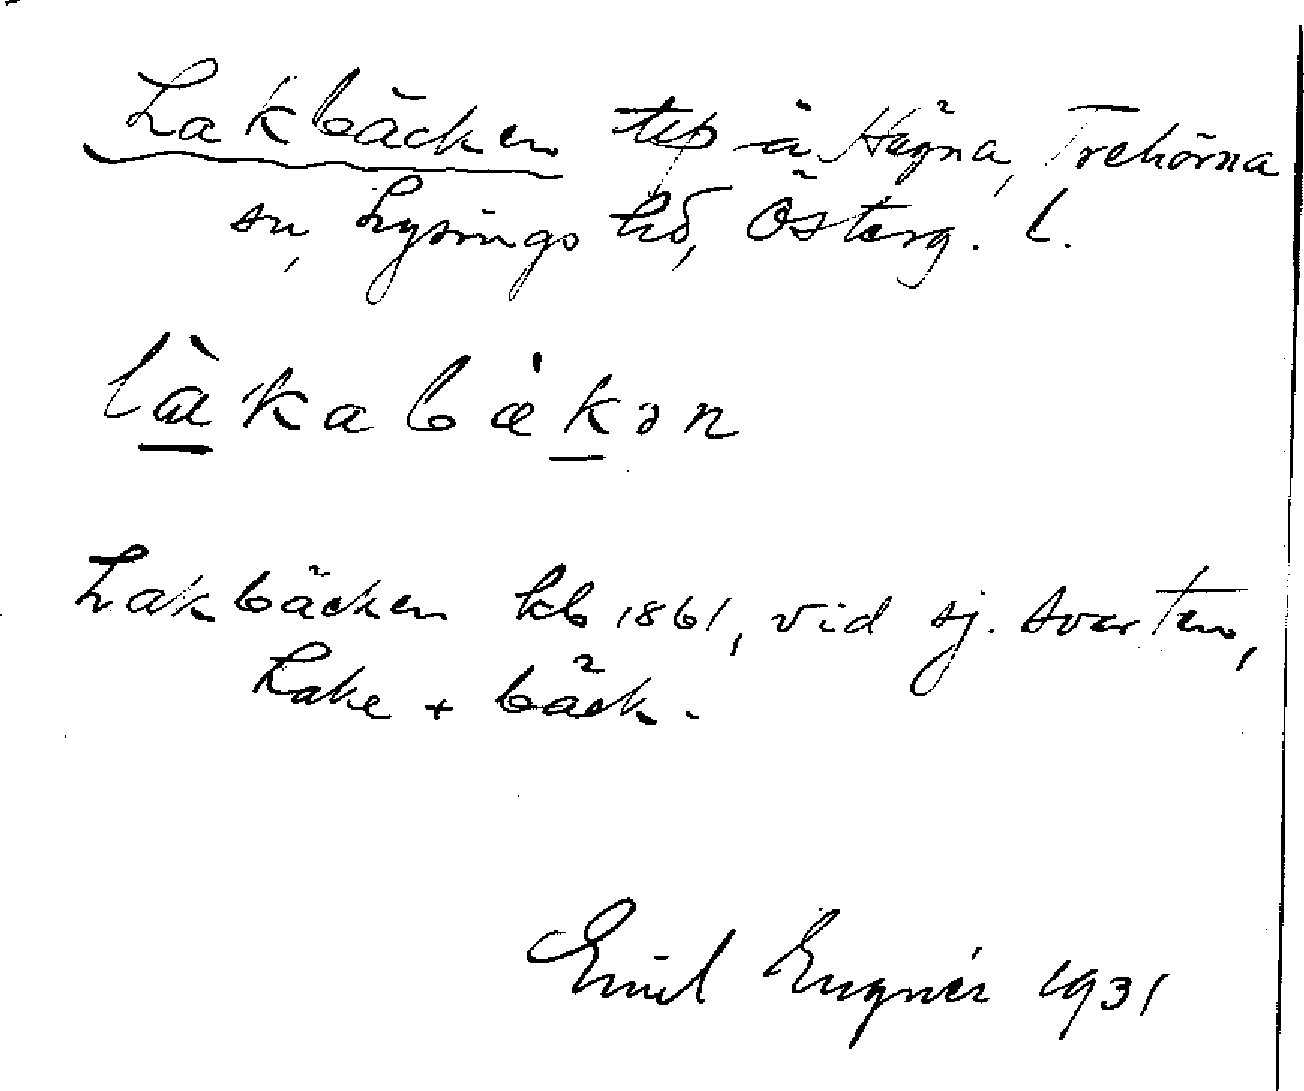 Lakbäcken tp å Hägna, Trehörna
sn, Lysings hd, Österg. l.
làkabækən
Lakbäcken kb 1861, vid sj. Svarten,
Lake + bäck.
Emil Eugnér 1931